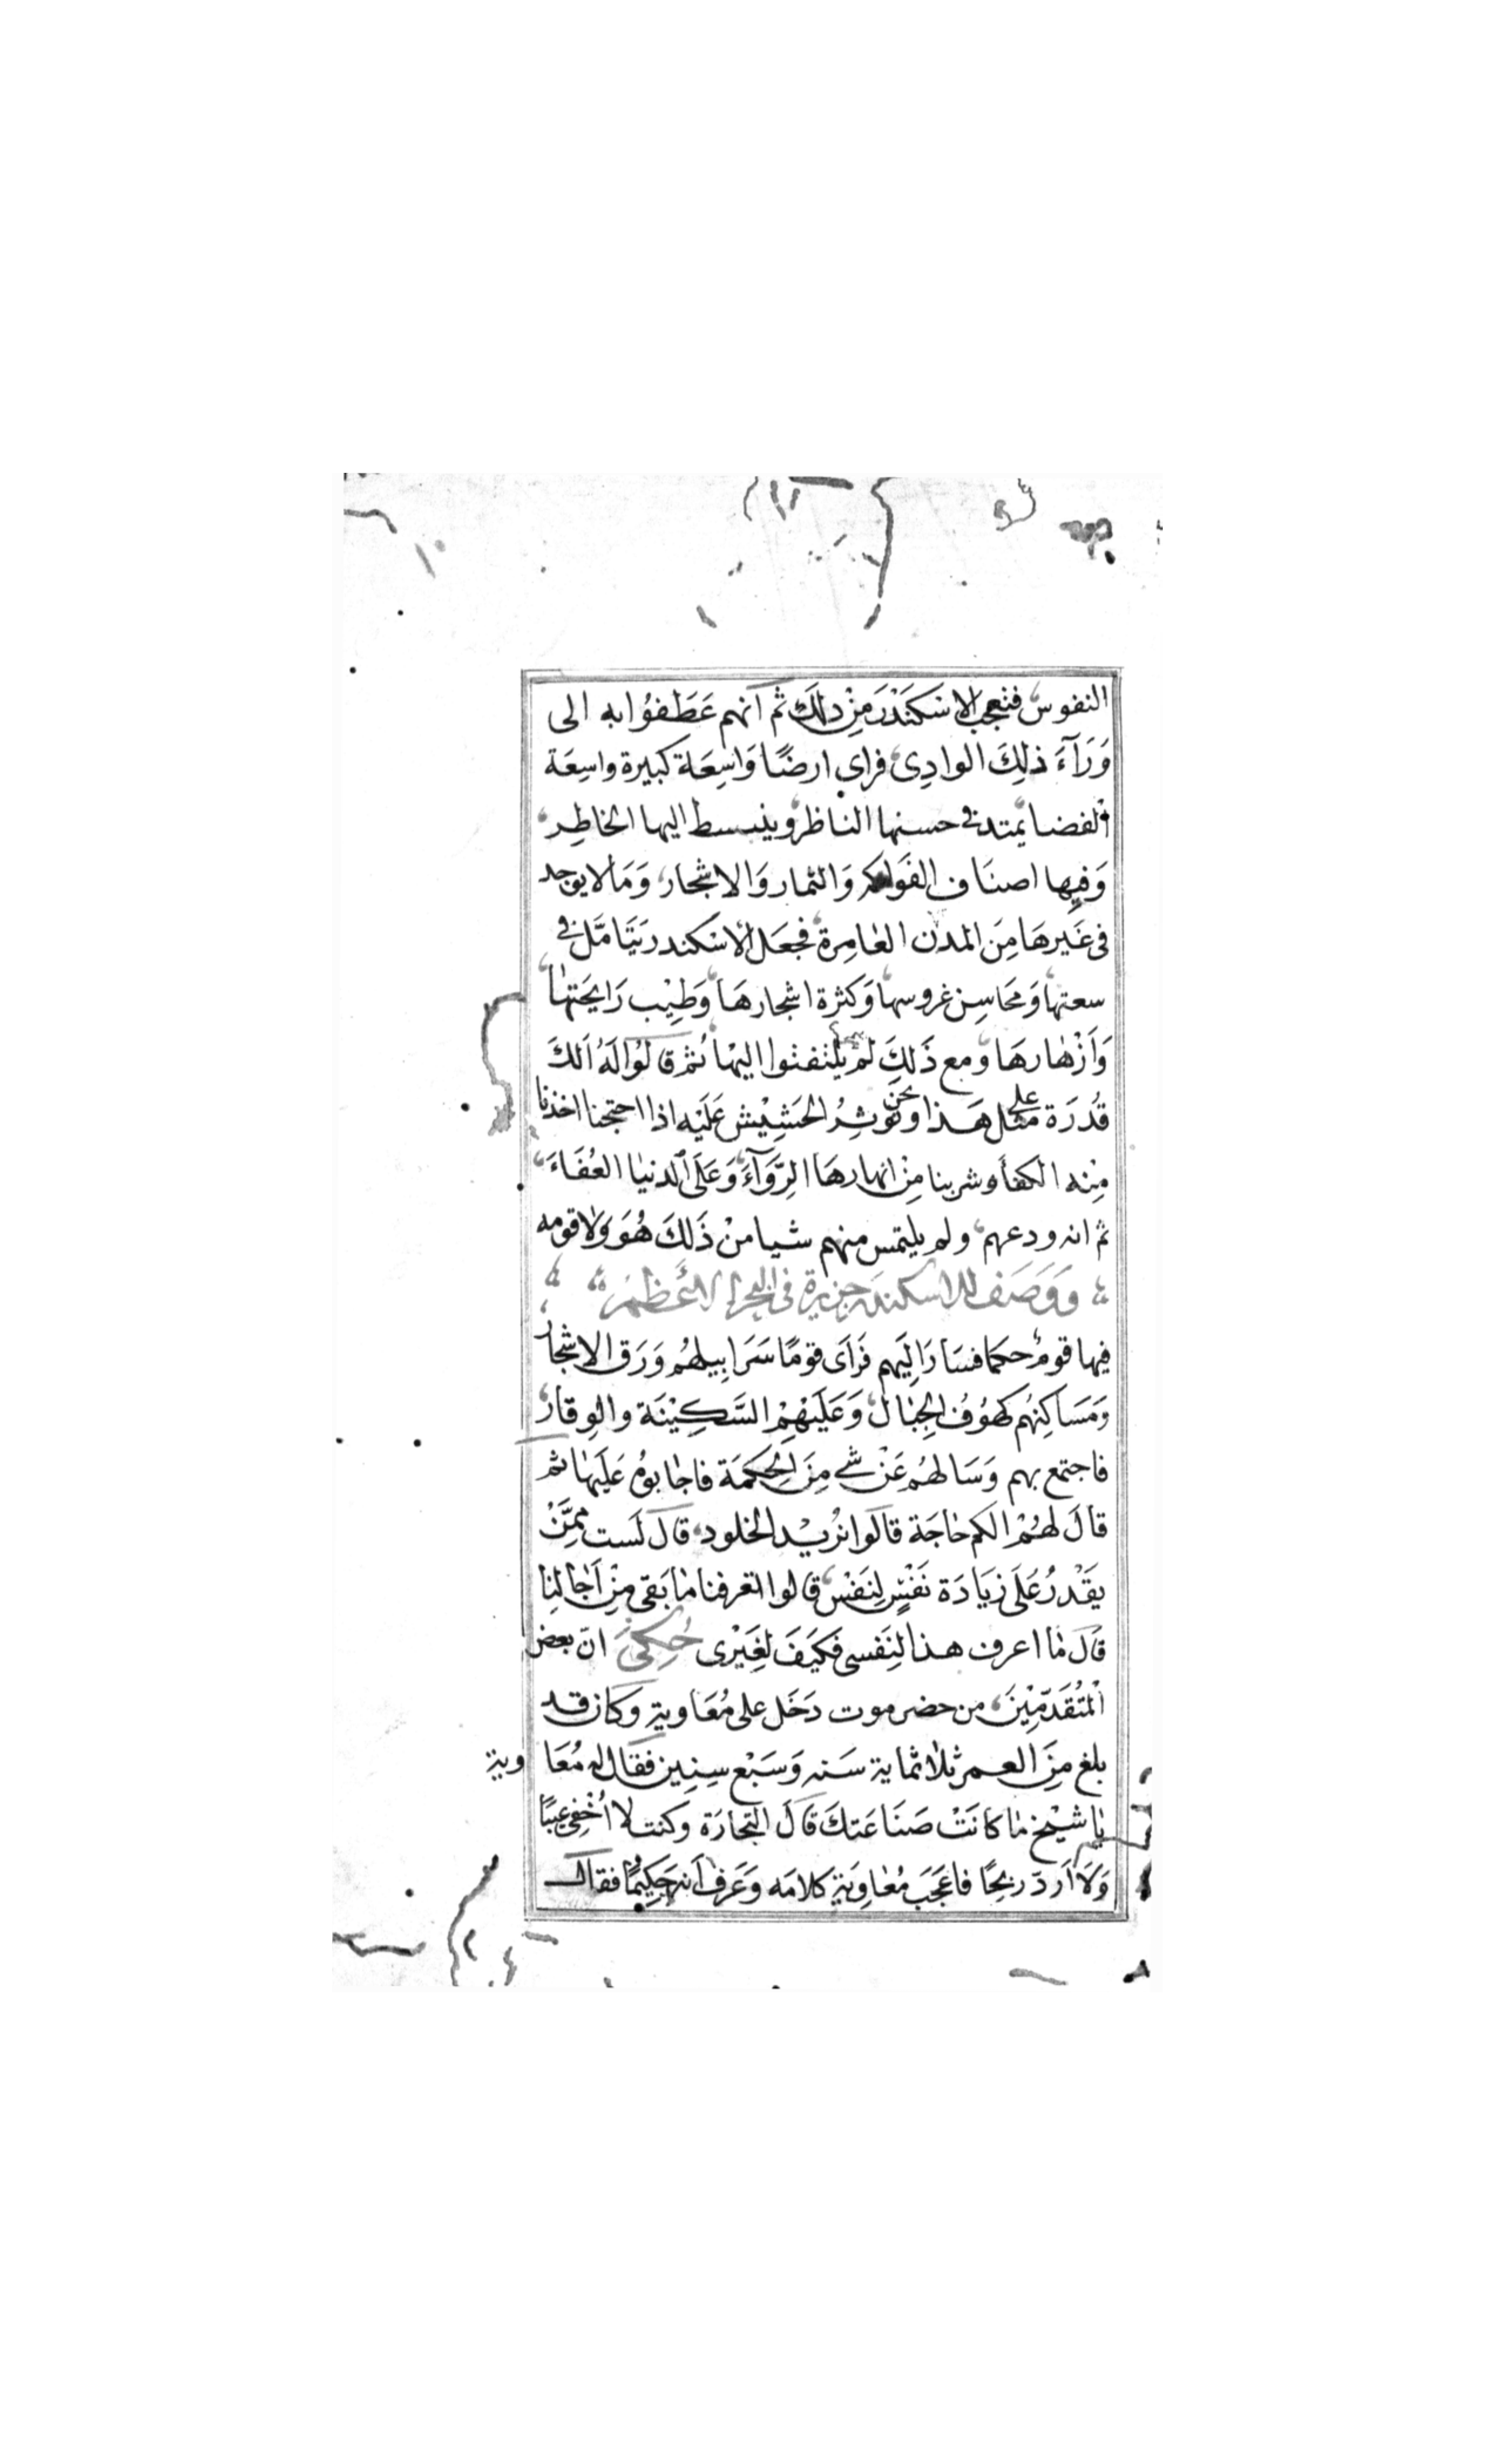 النفوس فتعجب الاسْكَنْدَرَ مِنْ ذلَكَ ثم انهم عَطَفوُا به الى
وَرَآءَ ذلِكَ الوادِى فراى ارضًا وَاسِعَة كبيرة واسِعَة
الفضا يمتد فى حسنها الناظر وينبسط اليها الخاطِر
وَفيِها اصنَاف الفَواكه وَالثمار وَالاشجار وَمَا لا يوجد
فى غَيرهَا مِنَ المدن العٰامِرة فجعَل الاسْكندر يَتَامَّل فى
سعتها وَمحَاسِن غروسها وَكثرة اشجارهَا وَطِيْب رَايحَتهٰا
وَاَزْهٰارهَا ومع ذَلِكَ لم يلتفتوا اليهٰا ثم قالوُا لهُ اَلكَ
قُدرَة على مثل هَذا ونحن نوثِرُ الحَشِيْش عَلَيْه اذا احتجنا اخذنا
مِنْه الكفأ وشربنا مِنْ انهارهَا الِرَّوَآءَ وَعَلَى الدنيٰا العُفَاءَ
ثم انه ودعهم ولم يلتمس منهم شيا منْ ذَلكَ هُوَ وَلا قومه
وَوَصَف للاسكندر جزيرة فى البحر الاَعظم
فيها قومٌ حكما فسَارَ اِلَيهم فرَاَى قومًا سَرَابيلهُم وَرَق الاشجار
وَمَسَاكِنهُم كهُوُف الجِبٰال وَعَلَيْهِمْ السَّكِيْنَة والوِقار
فاجتمع بهم وَسَالهُم عَنْ شَے مِنَ الحِكمَة فاجٰابوُ عَلَيهٰا ثم
قالَ لهُمْ الكم حٰاجَة قالوا نرُيْد الخلود قال لَست ممِنَّْ
يقَدْرُ عَلَى زيَادَة نَفْسٍ لِنَفْسٍ قالوا اتعرفنا مٰا بَقى مِنْ اَجٰالنِا
قال مٰا اعرف هذا لِنَفسى فكيَفَ لغَيْرى حُكِىَ انّ بعض
اْلمتُقَدّمِيْنَ من حضرموت دَخَل على مُعَاوية وكان قد
بلغ مِنَ العمر ثلاثماية سَنه وَسَبْع سِنِين فقال له مُعَاوية
يٰا شيْخ مٰا كانَتْ صَنَاعَتكَ قالَ التجارَة وكنت لا اُخْفِى عيبًا
وَلاَ اَردّ ربحِاً فاعَجَبَ مُعٰاوِيَة كلامَه وَعَرف اَنه حَكِيْمًا فقال